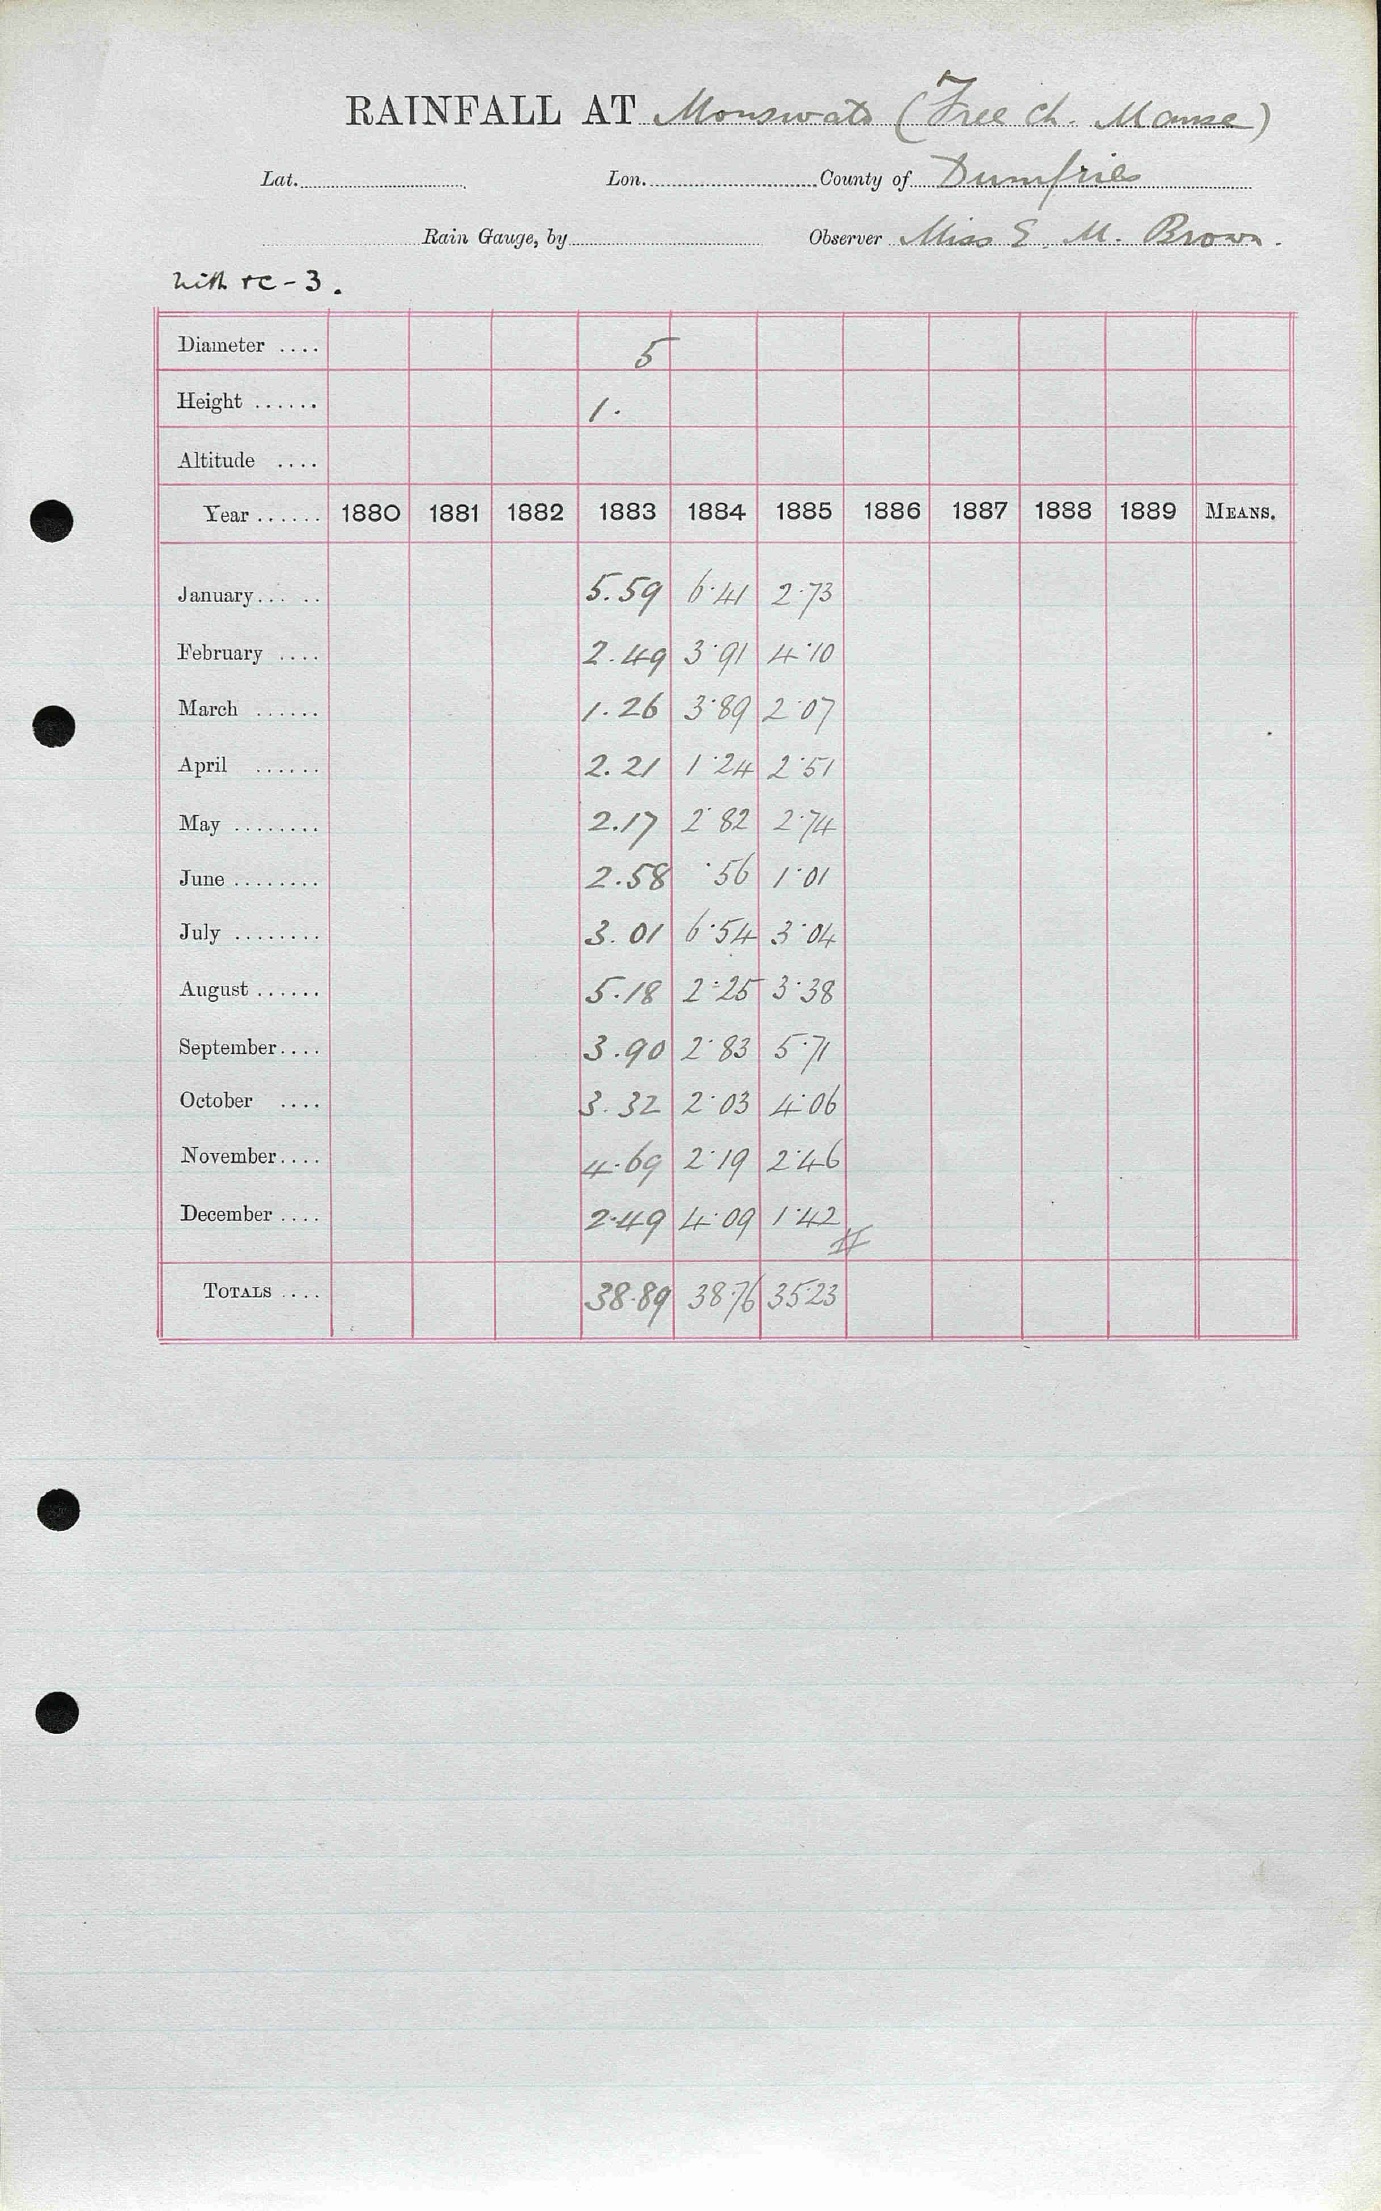 RAINFALL AT Monswats (Free Ch. Manse)
Lat. Lon. County of Dumfries
Rain Gauge, by Observer Miss E. M. Brown.
With - 3.
Diameter .... 5
Height ...... 1.
Altitude ....
Year ...... 1880 1881 1882 1883 1884 1885 1886 1887 1888 1889 MEANS.
January... .. 5.59 6.41 2.73
February .... 2.49 3.91 4.10
March ...... 1.26 3.89 2.07
April ...... 2.21 1.24 2.51
May ........ 2.17 2.82 2.74
June ........ 2.58 .56 1.01
July ........ 3.01 6.54 3.04
August ...... 5.18 2.25 3.38
September.... 3.90 2.83 5.71
October .... 3.32 2.03 4.06
November.... 4.69 2.19 2.46
December .... 2.49 4.09 1.42
TOTALS .... 38.89 38.76 35.23